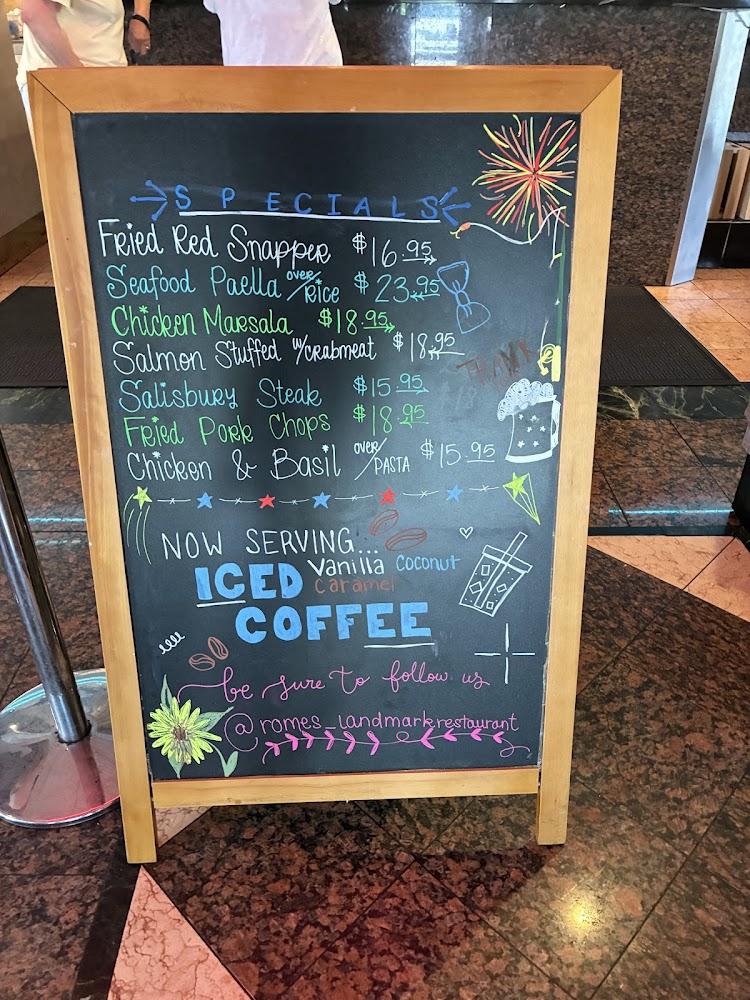 SPECIALS
Fried Red Snapper $16.95
Seafood Paella over/Rice $23.95
Chicken Marsala $18.95
Salmon Stuffed w/crabmeat $18.95
Salisbury Steak $15.95
Fried Pork Chops $18.95
Chicken & Basil over/PASTA $15.95
THANK
NOW SERVING...
Vanilla Coconut
ICED Caramel
COFFEE
be sure to follow us
@romes_landmarkrestaurant